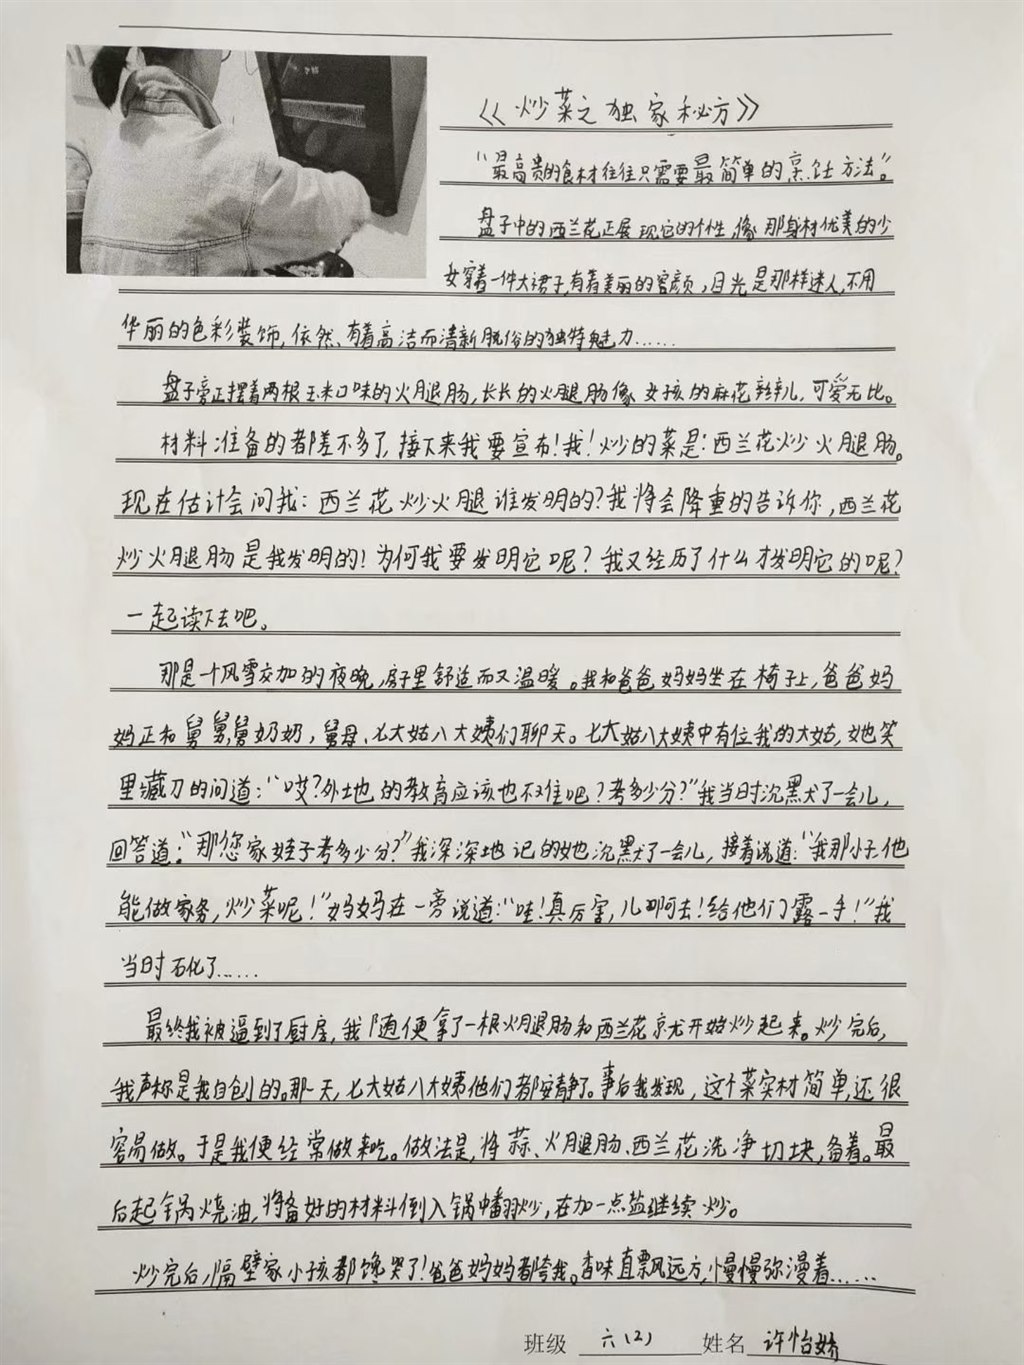 《炒菜之独家秘方》
“最高贵的食材往往只需要最简单的烹饪方法”。
盘子中的西兰花正展现它的个性，像那身材优美的少
女穿着一件大裙子，有着美丽的容颜，目光是那样迷人，不用
华丽的色彩装饰，依然、有着高洁而清新脱俗的独特魅力……
盘子旁正摆着两根玉米口味的火腿肠，长长的火腿肠像女孩的麻花辫儿，可爱无比。
材料准备的都差不多了，接下来我要宣布！我！炒的菜是：西兰花炒火腿肠。
现在估计会问我：西兰花炒火腿谁发明的？我将会降重的告诉你，西兰花
炒火腿肠是我发明的！为何我要发明它呢？我又经历了什么才发明它的呢？
一起读下去吧。
那是一个风雪交加的夜晚，房子里舒适而又温暖。我和爸爸妈妈坐在椅子上，爸爸妈
妈正和舅舅，舅奶奶，舅母、七大姑八大姨们聊天。七大姑八大姨中有位我的大姑，她笑
里藏刀的问道：“哎？外地的教育应该也不佳吧？考多少分？”我当时沉默了一会儿，
回答道：“那您家娃子考多少分？”我深深地记的她沉默了一会儿，接着说道：“我那小子他
能做家务，炒菜呢！”妈妈在一旁说道：“哇！真厉害，儿啊去！给他们露一手！”我
当时石化了……
最终我被逼到了厨房，我随便拿了一根火腿肠和西兰花就开始炒起来。炒完后，
我声称是我自创的。那一天，七大姑八大姨他们都安静了。事后我发现，这个菜实材简单，还很
容易做。于是我便经常做来吃。做法是，将蒜、火腿肠、西兰花洗净切块，备着。最
后起锅烧油，将备好的材料倒入锅中翻炒，在加一点盐继续炒。
炒完后，隔壁家小孩都馋哭了！爸爸妈妈都夸我。香味直飘远方，慢慢弥漫着……
班级 六（2） 姓名 许怡娇